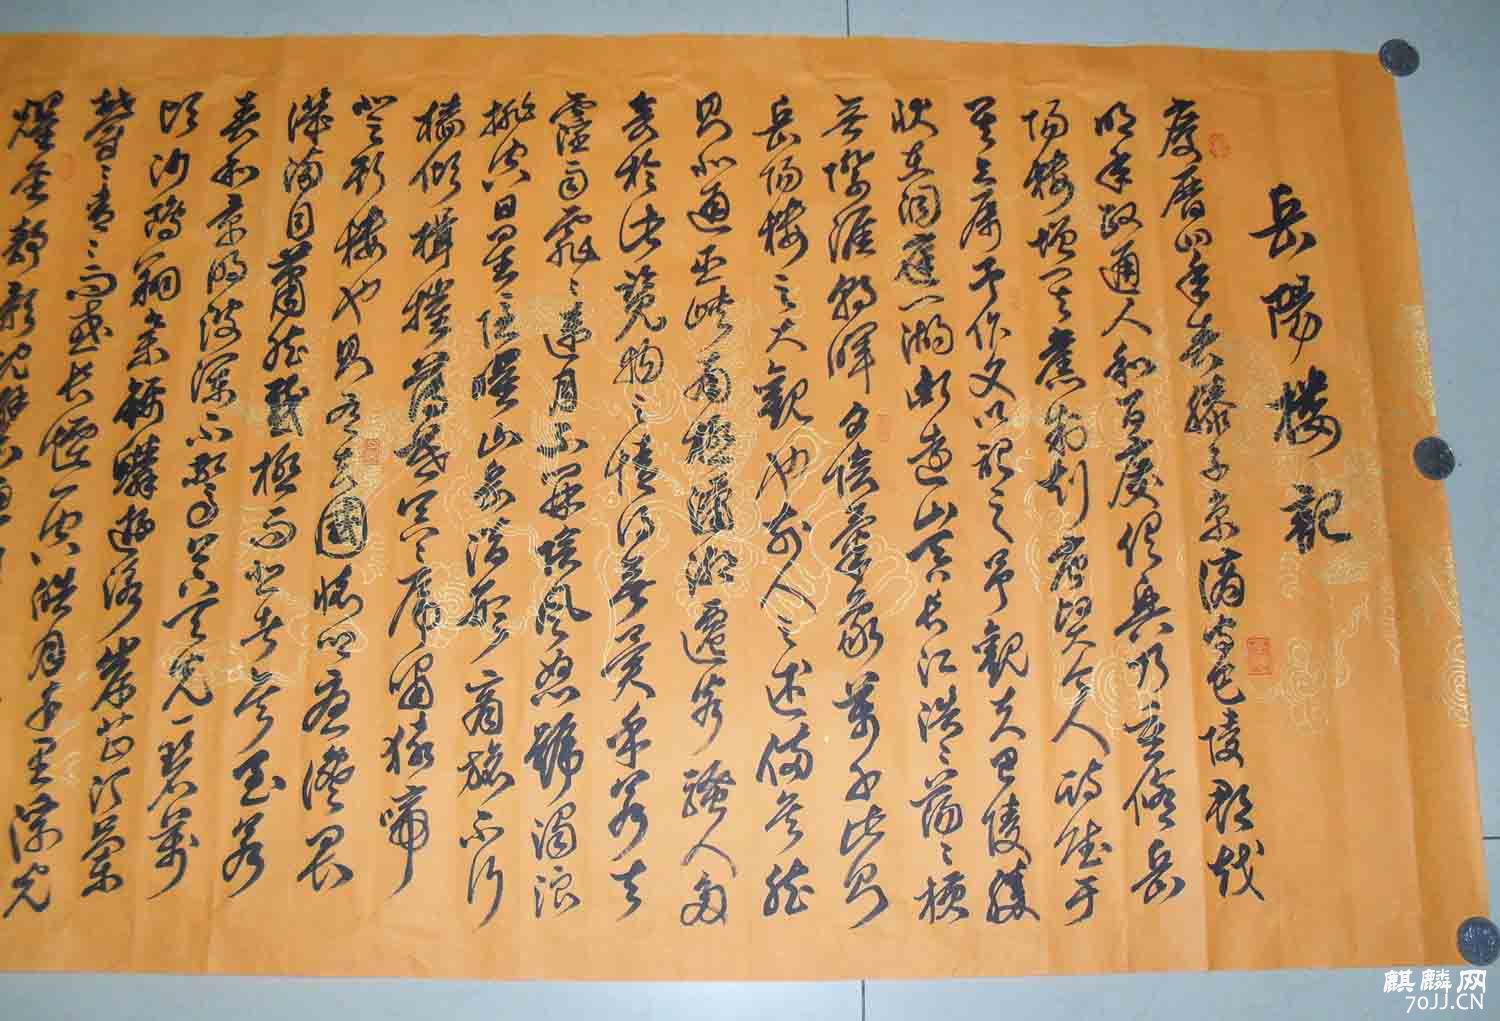 岳陽楼記
慶曆四年春滕子京謫守巴陵郡越
明年政通人和百廢俱興乃重修岳
陽樓增其舊制刻唐賢今人詩賦于
其上屬予作文以記之予觀夫巴陵勝
狀在洞庭一湖銜遠山吞長江浩〻蕩〻橫
無際涯朝暉夕陰氣象萬千此則
岳陽樓之大觀也前人之述備矣然
則北通巫峽南極瀟湘遷客騷人多
會於此覽物之情得無異乎若夫
霪雨霏〻連月不開陰風怒號濁浪
排空日星隱曜山岳潛形商旅不行
檣傾楫摧薄暮冥〻虎嘯猿啼
登斯樓也則有去國懷鄉憂讒畏
譏滿目蕭然感極而悲者矣至若
春和景明波瀾不驚上下天光一碧萬
頃沙鷗翔集錦鱗游泳岸芷汀蘭
鬱〻青〻而或長煙一空皓月千里浮光
耀金靜影沈璧
麒麟网
70JJ.CN